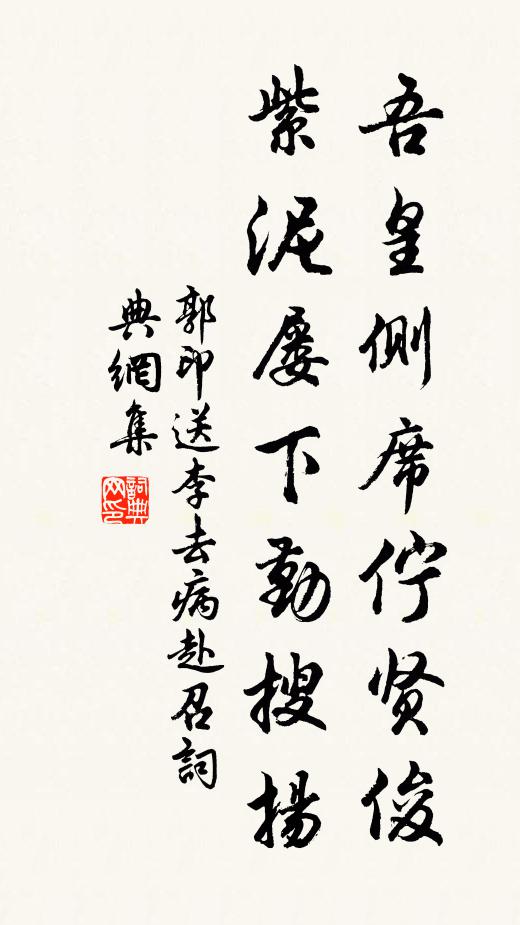 吾皇側席佇贤俊
紫泥屡下勤搜揚
郭印送李去病赴召詞
典網集
詞典网印